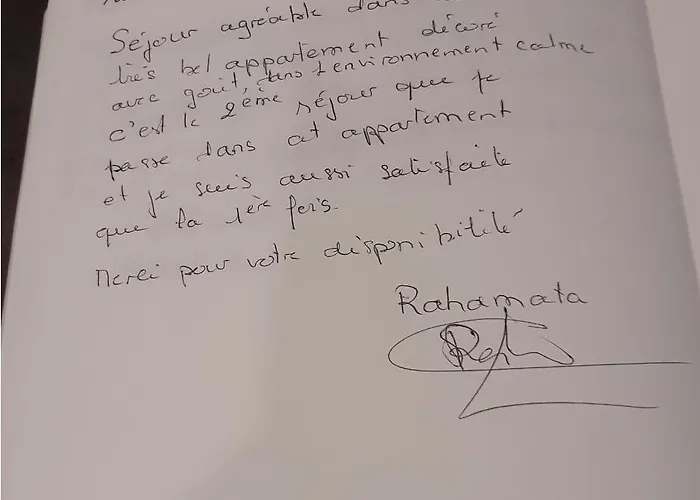 Séjour agréable dans
très bel appartement décoré
avec goût, dans 1 environnement calme
c'est le 2ème séjour que je
passe dans cet appartement
et je suis aussi satisfaite
que la 1ère fois.
Merci pour votre disponibilité
Rahamata